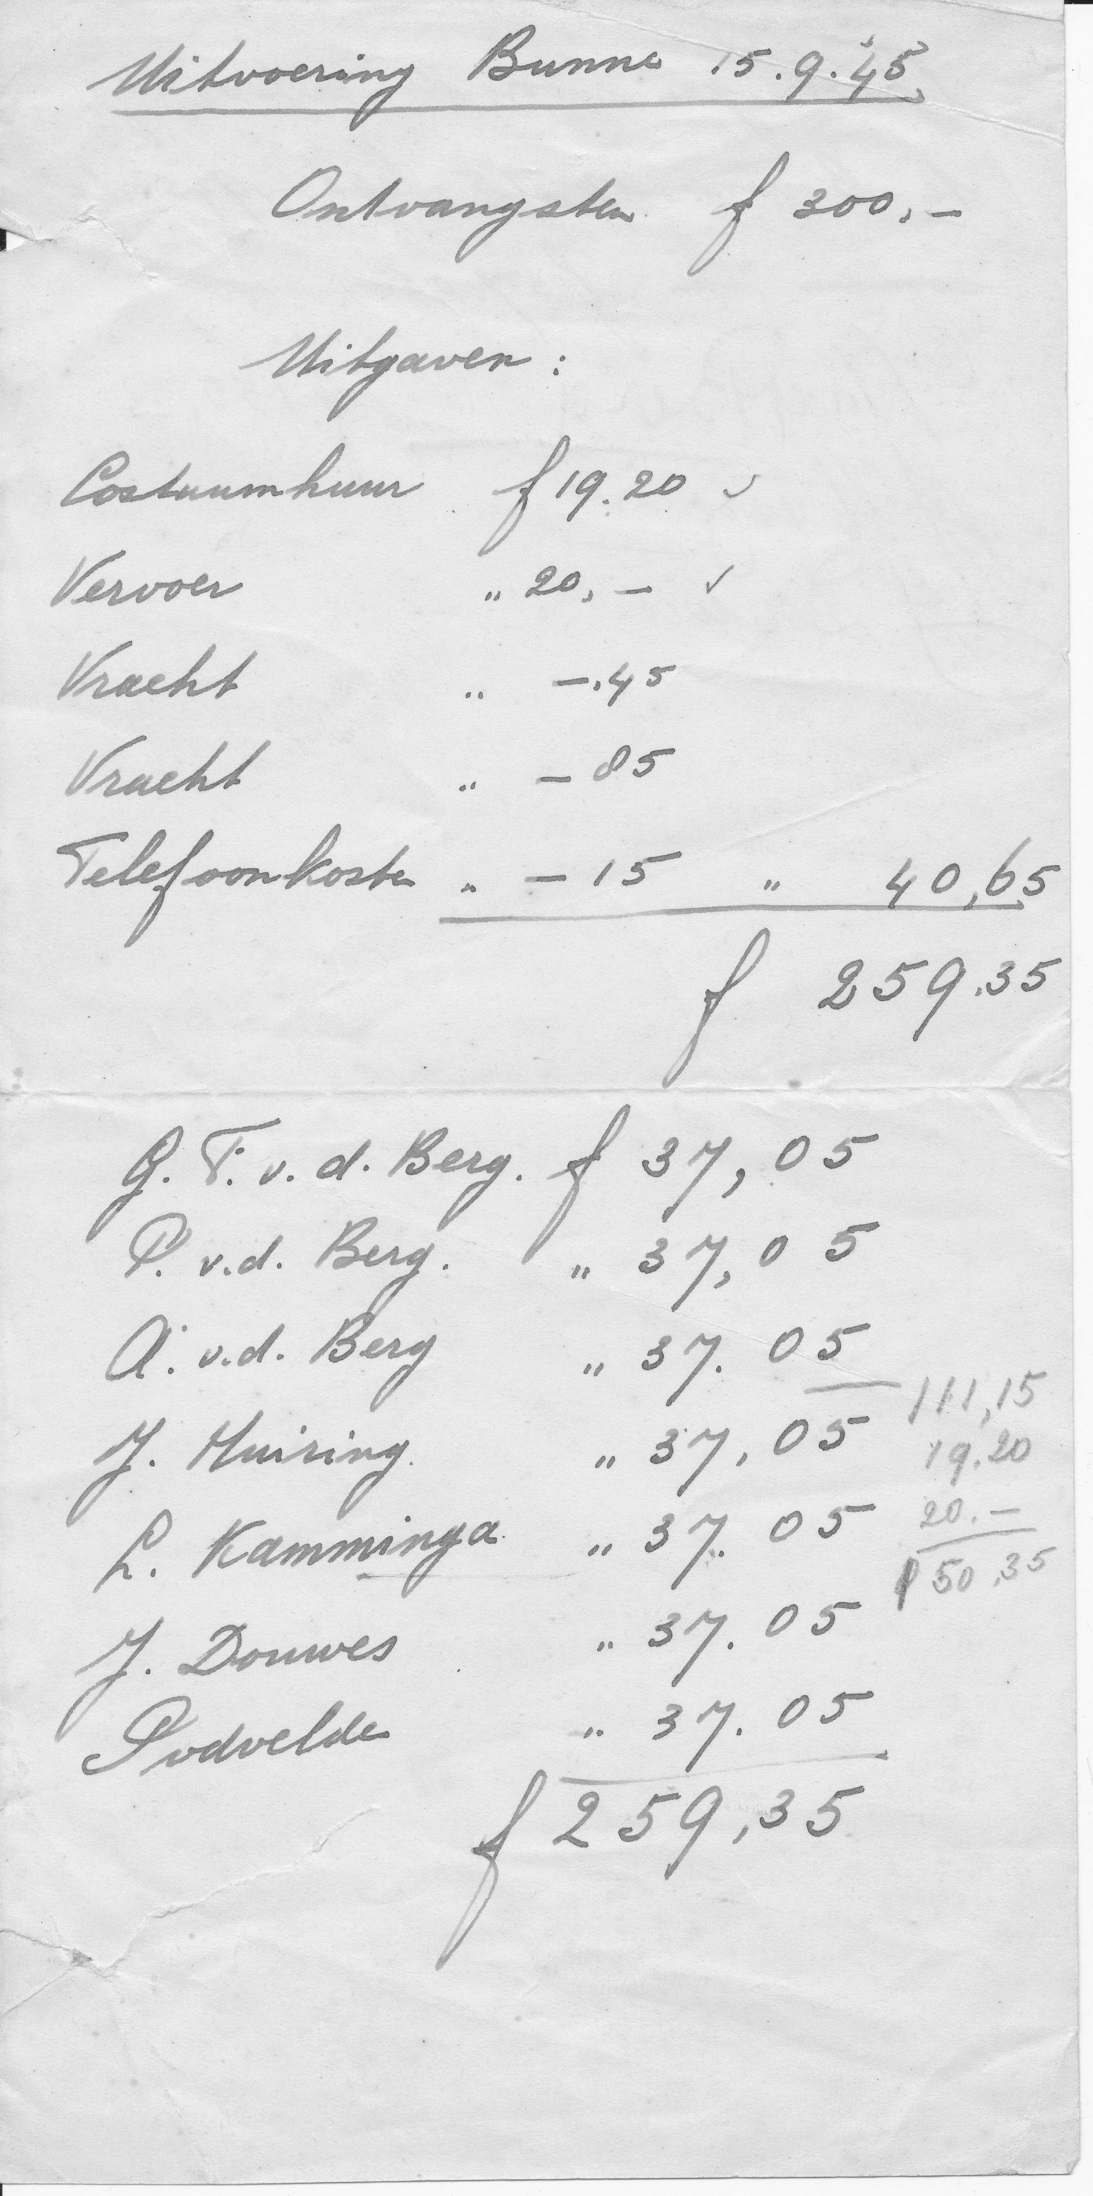 Uitvoering Bunne 15.9.45
Ontvangsten f 300,-
Uitgaven:
Costuumhuur f 19.20 ✓
Vervoer " 20,- ✓
Vracht " -.45
Vracht " -85
Telefoonkosten " -15 " 40,65
f 259.35
G. F. v. d. Berg. f 37,05
P. v.d. Berg. " 37,05
A. v.d. Berg " 37.05
111,15
J. Huiring. " 37,05
19.20
L. Kamminga " 37.05
20.-
150.35
J. Douwes " 37.05
" 37.05
f 259,35